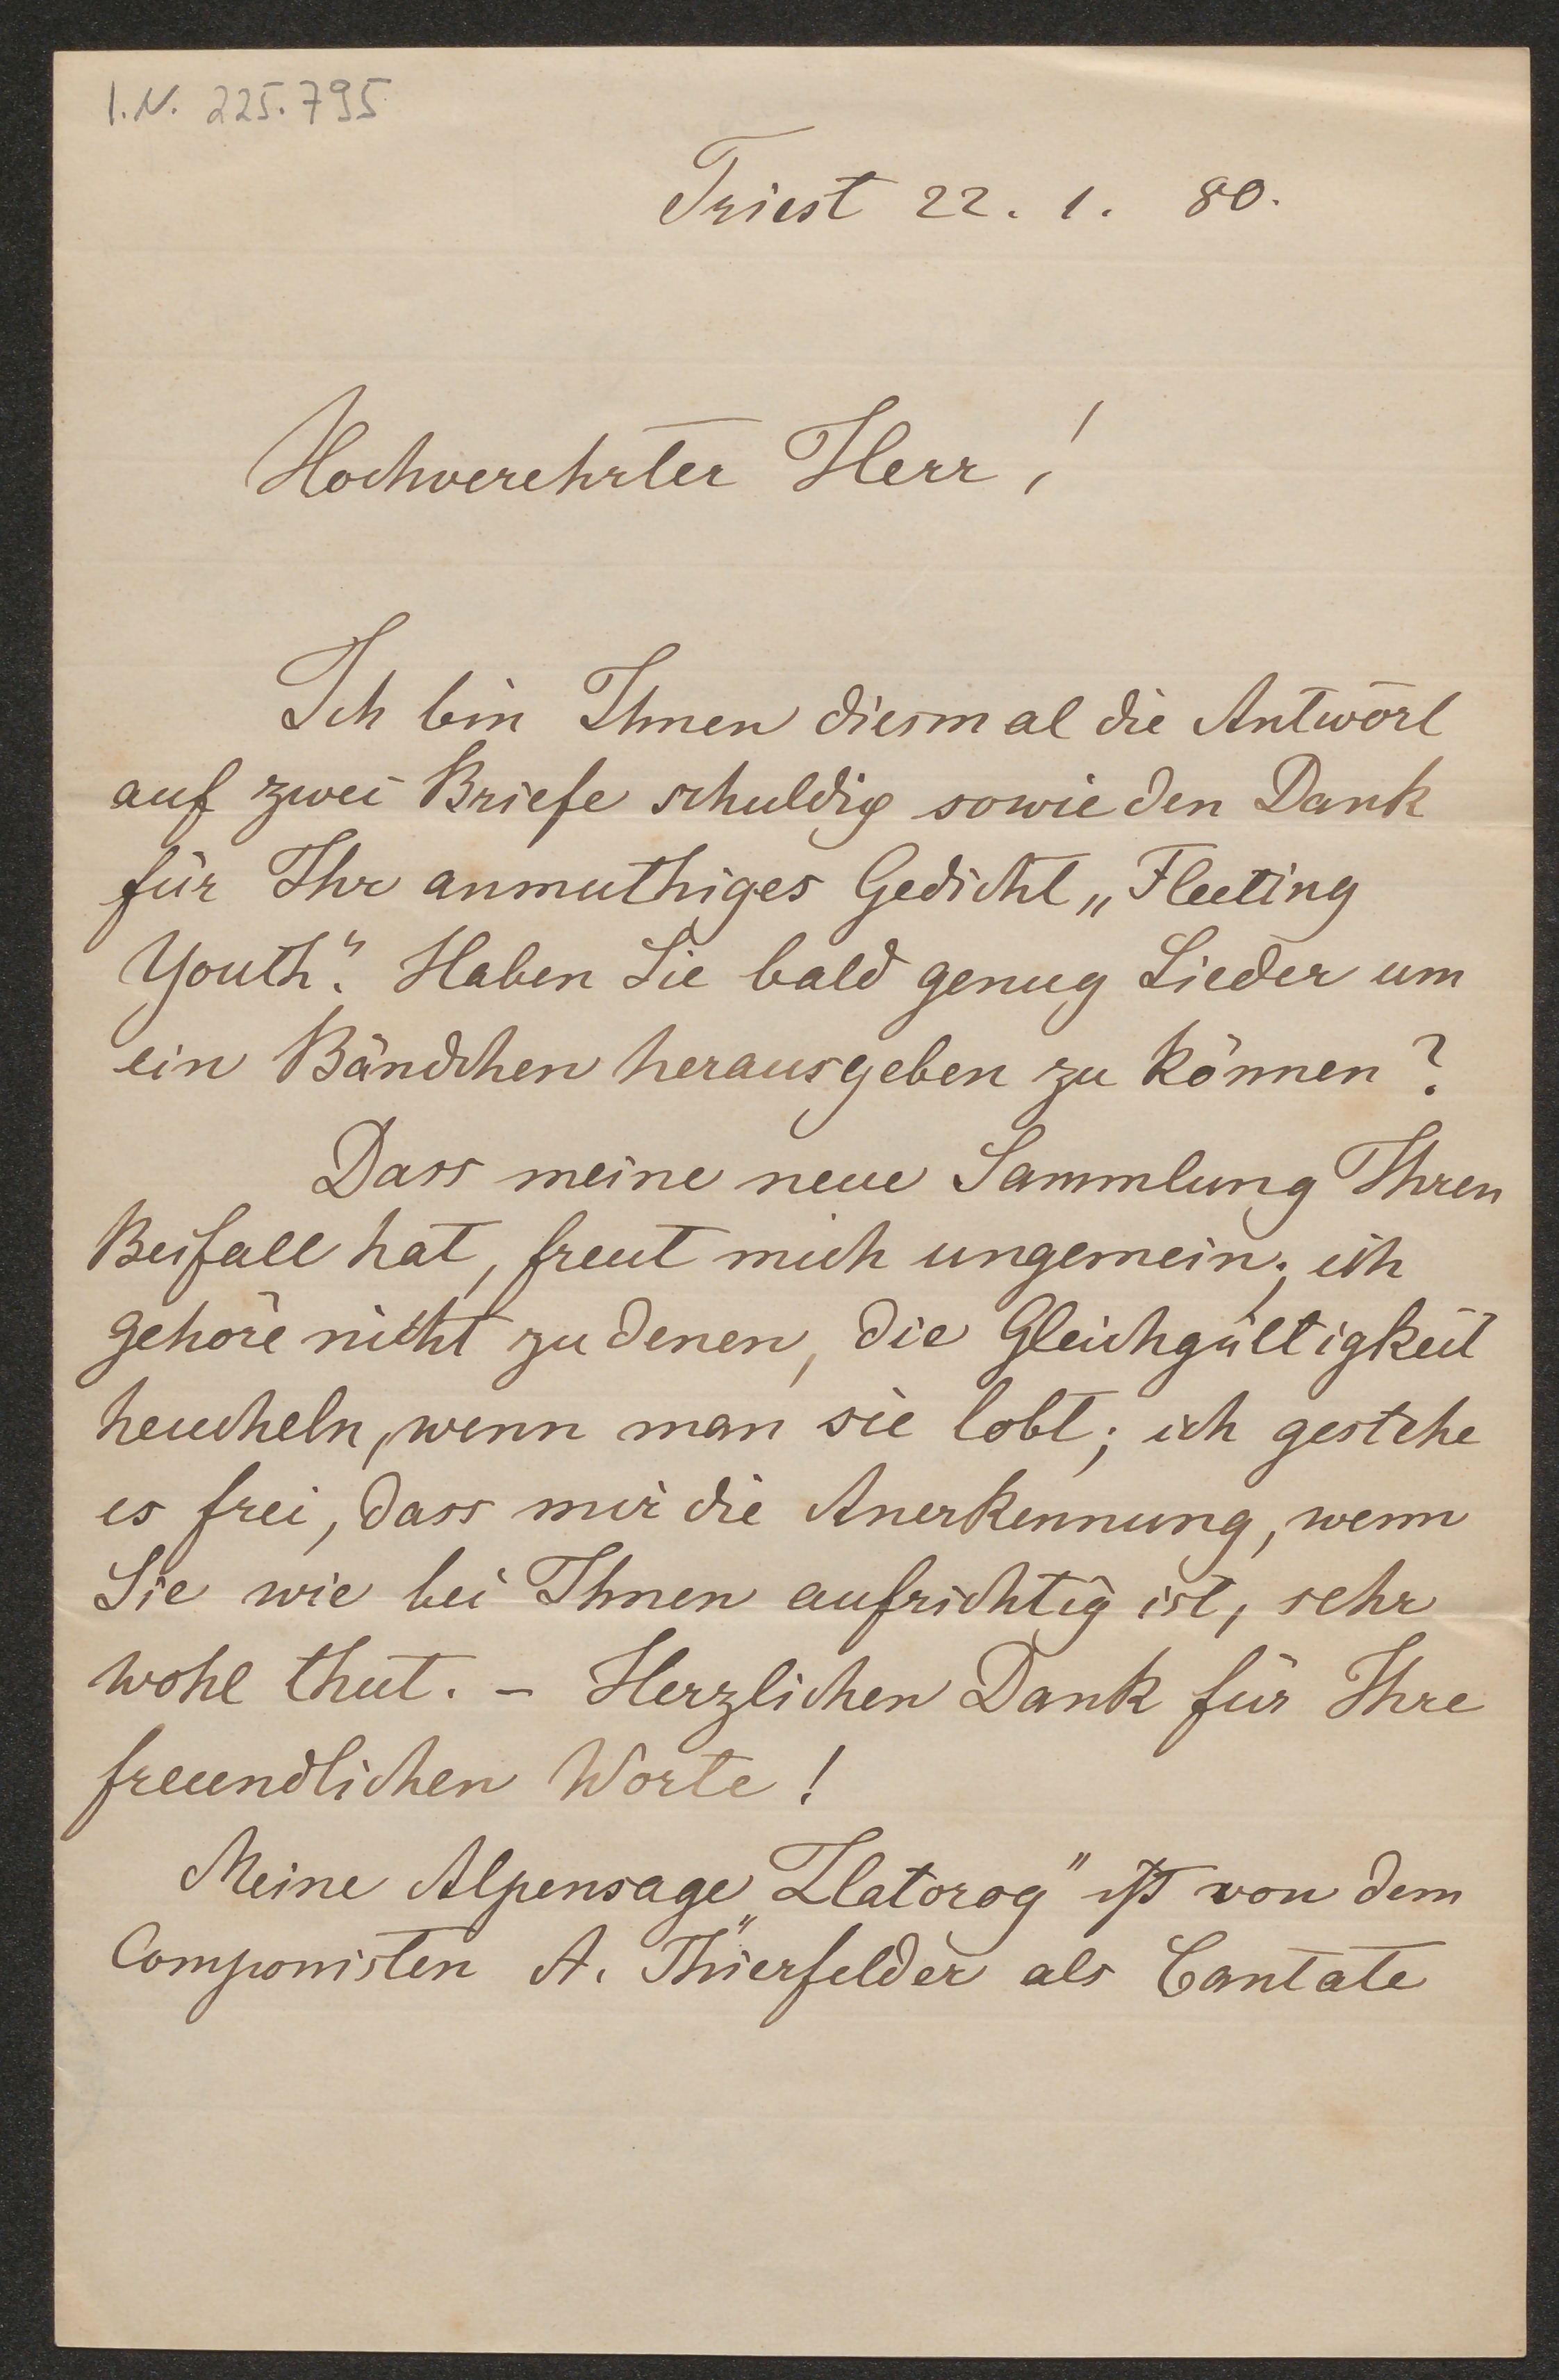 I.N. 225.795
Triest 22. 1. 80.
Hochverehrter Herr!
Ich bin Ihnen diesmal die Antwort
auf zwei Briefe schuldig sowie den Dank
für Ihr anmuthiges Gedicht „Fleeting
Youth“. Haben Sie bald genug Lieder um
ein Bändchen herausgeben zu können?
Dass meine neue Sammlung Ihren
Beifall hat, freut mich ungemein; ich
gehöre nicht zu denen, die Gleichgültigkeit
heucheln, wenn man sie lobt; ich gestehe
es frei, dass mir die Anerkennung, wenn
Sie wie bei Ihnen aufrichtig ist, sehr
wohl thut. – Herzlichen Dank für Ihre
freundlichen Worte!
Meine Alpensage „Zlatorog“ ist von dem
Componisten A. Thierfelder als Cantate